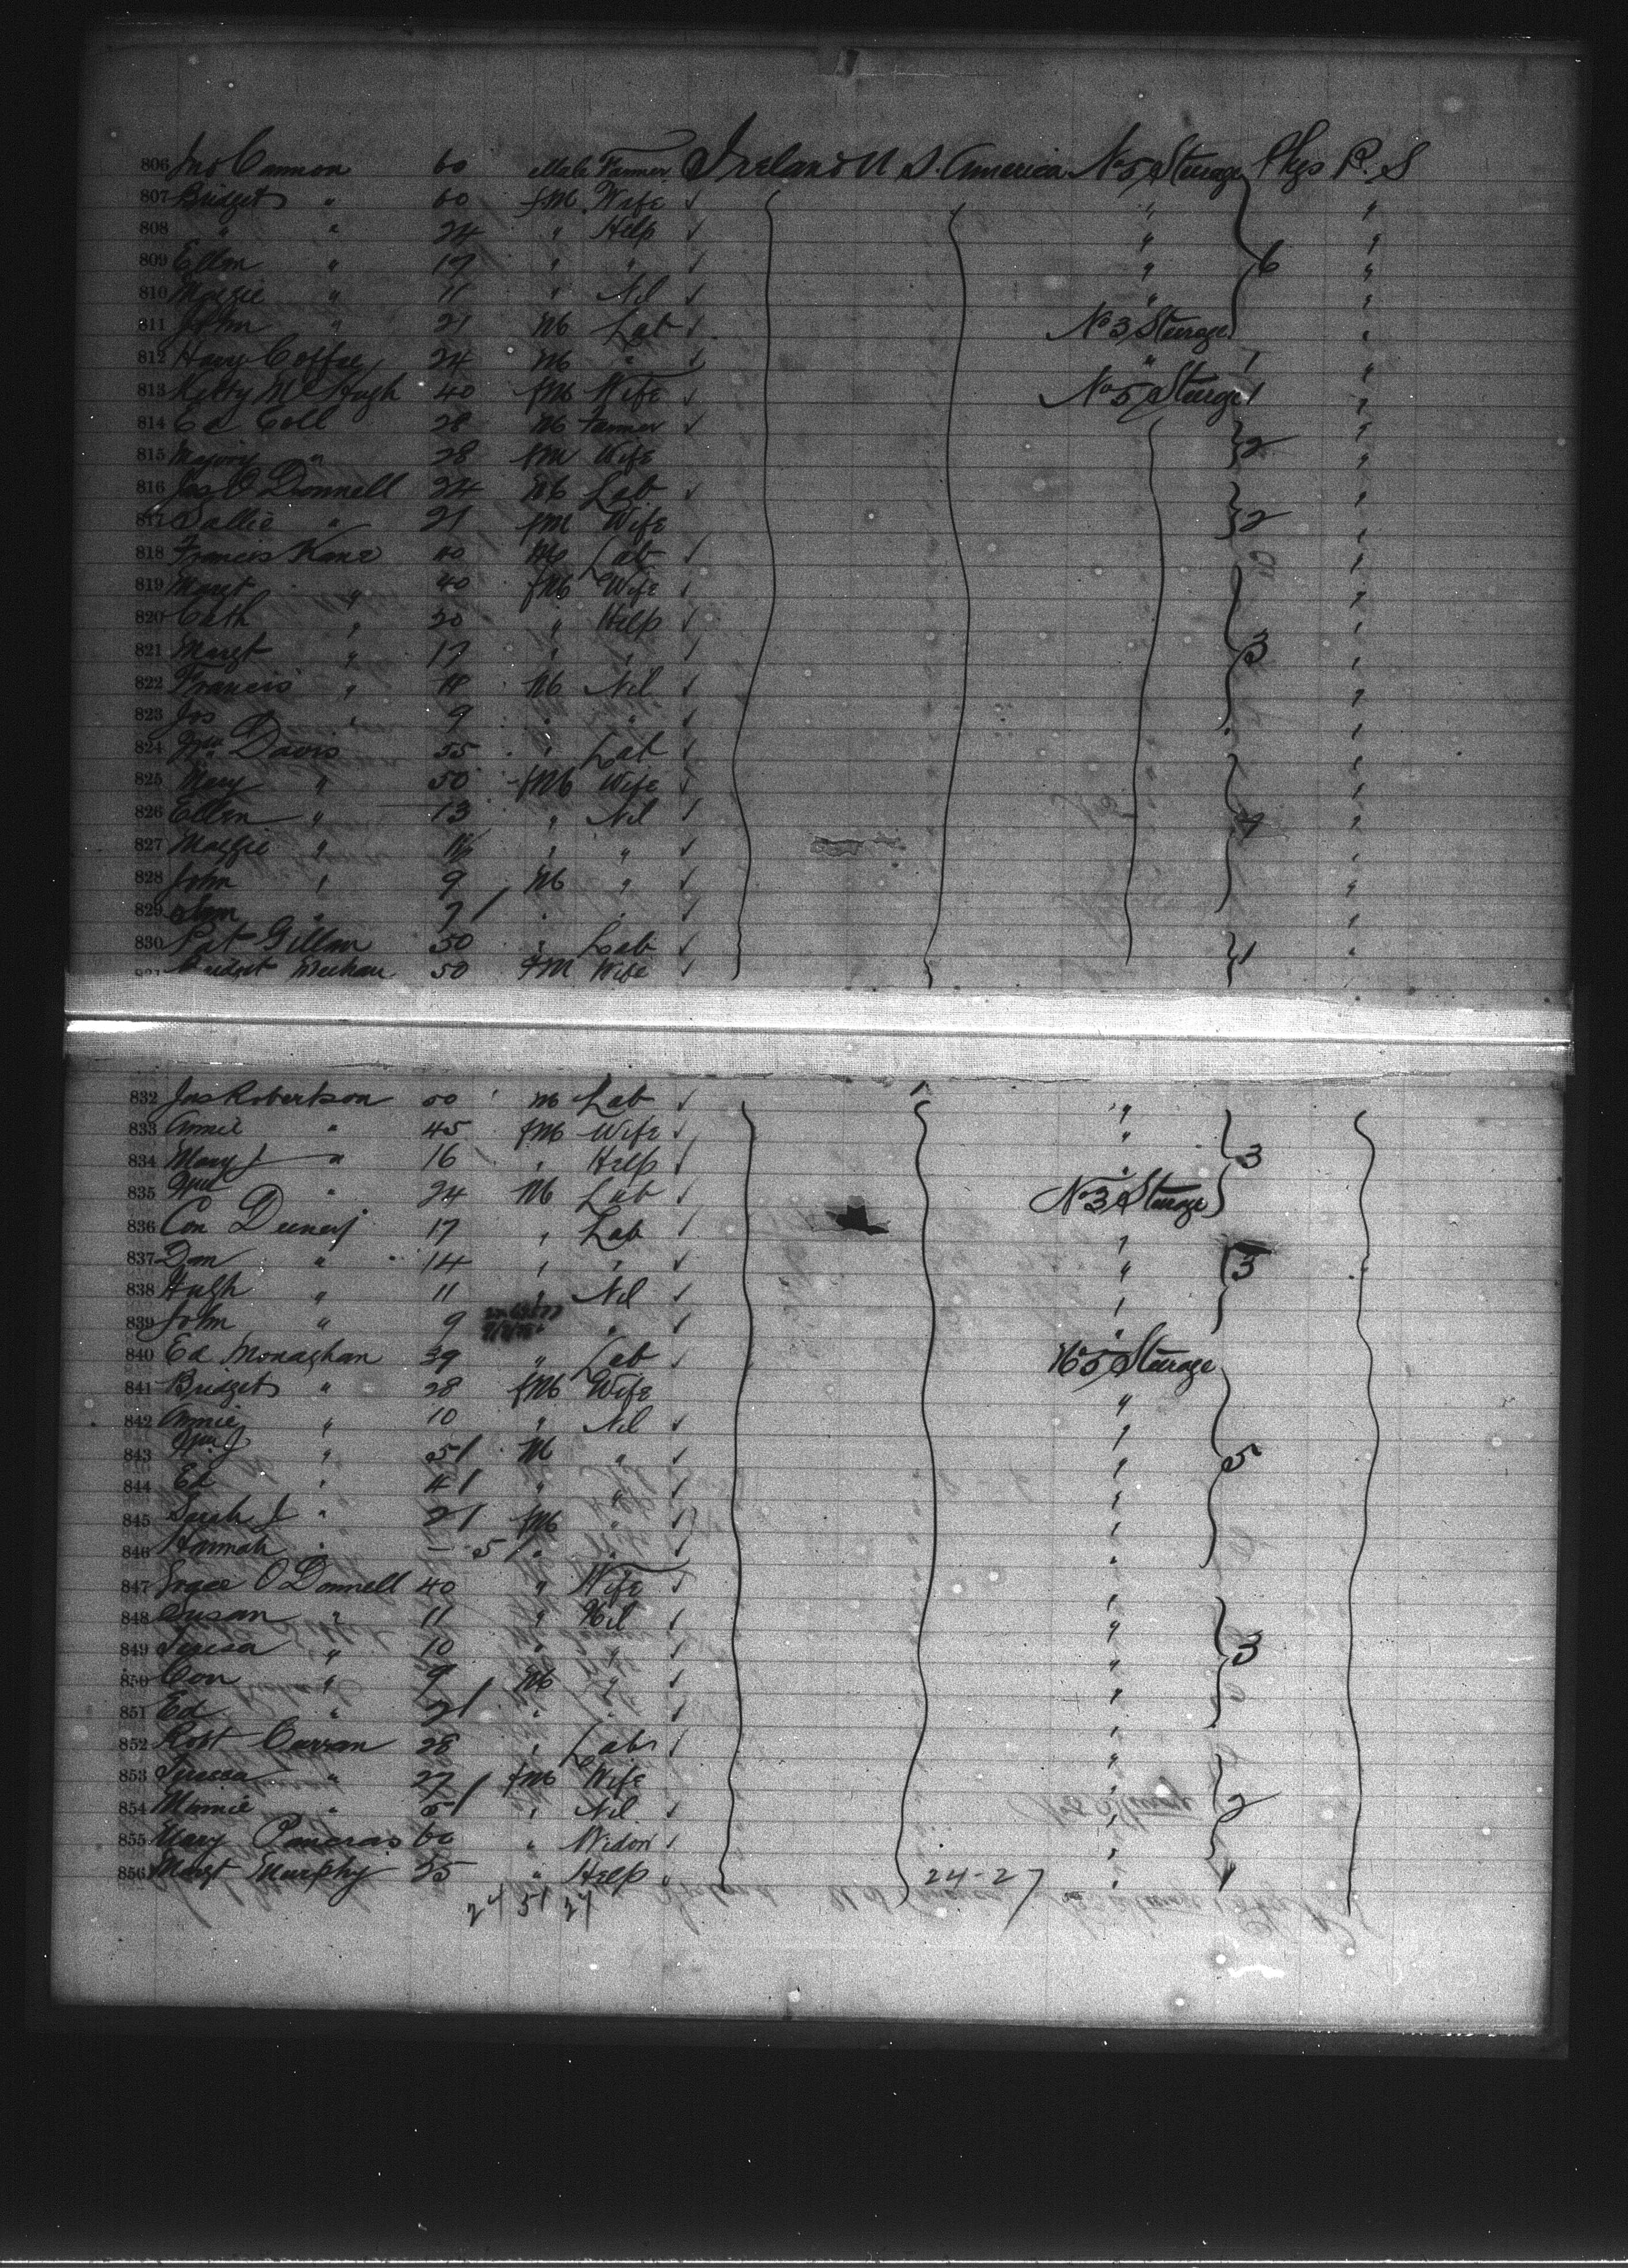 806 Jno Cannon 60 Male Farmer Ireland U S. America No 5 Steerage Phgs P. S
807 Bridget " 60 fM Wife "
808 " " 24 " Help " "
809 Ellen " 17 " " " 6 "
810 Maggie " 11 " Nil " "
811 John " 21 M Lab No 3 Steerage "
812 Harry Coffee 24 M " " 1 "
813 Kitty McHugh 40 fM Wife No 5 Steerage 1 "
814 Ed Coll 28 M Farmer "
815 " 28 fM Wife 2 "
816 Jas O Donnell 24 M Lab "
817 Sallie " 21 fM Wife 2 "
818 Francis Kane M Lab "
819 Margt " 40 fM Wife "
820 Cath " 20 " Help "
821 Margt " 17 " " 3 "
822 Francis " M Nil "
823 Jos " 9 " " "
824 Wm Davis 55 " Lab "
825 Mary " 50 fM Wife "
826 Ellen " 13 " Nil "
827 Maggie " " " "
828 John " 9 M " "
829 " 7 " " "
830 Pat Gillan 50 " Lab 1 "
831 Bridget Meehan 50 fM Wife
832 Jas Robertson M Lab "
833 Annie " 45 fM Wife " 3
834 Mary J " 16 " Help "
835 Wm " 24 M Lab No 3 Steerage
836 Con 17 " Lab "
837 Dan " 14 " " " 3
838 Hugh " 11 " Nil "
839 John " 9 " " "
840 Ed Monaghan 39 " Lab No 5 Steerage
841 Bridget " 28 fM Wife "
842 Annie " 10 " Nil "
843 Wm J " 5 M " " 5
844 Ed " 4 " " "
845 Sarah J " 2 fM " "
846 Hannah " — 5 " " "
847 Grace O Donnell 40 " Wife "
848 Susan " 11 " Nil "
849 Teresa " 10 " " " 3
850 Con " 9 M " "
851 Ed " 2 " " "
852 Robt Curran 28 " Lab "
853 Teresa " 27 fM Wife "
854 Minnie " 5 " Nil " 2
855 Mary 60 " Widow "
856 Margt Murphy 25 " Help 24-27 " 1
24 51 24